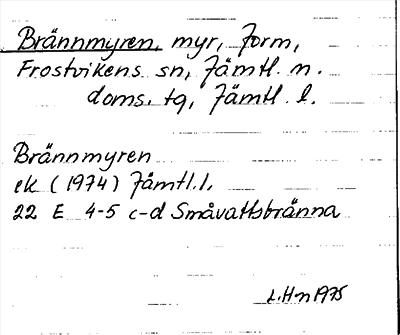 Brännmyren, myr, Form,
Frostvikens sn, Jämtl. n.
doms. tg, Jämtl. l.
Brännmyren
ek (1974) Jämtl. l.
22 E 4-5 c-d Småvattsbränna
L.H-n 1975